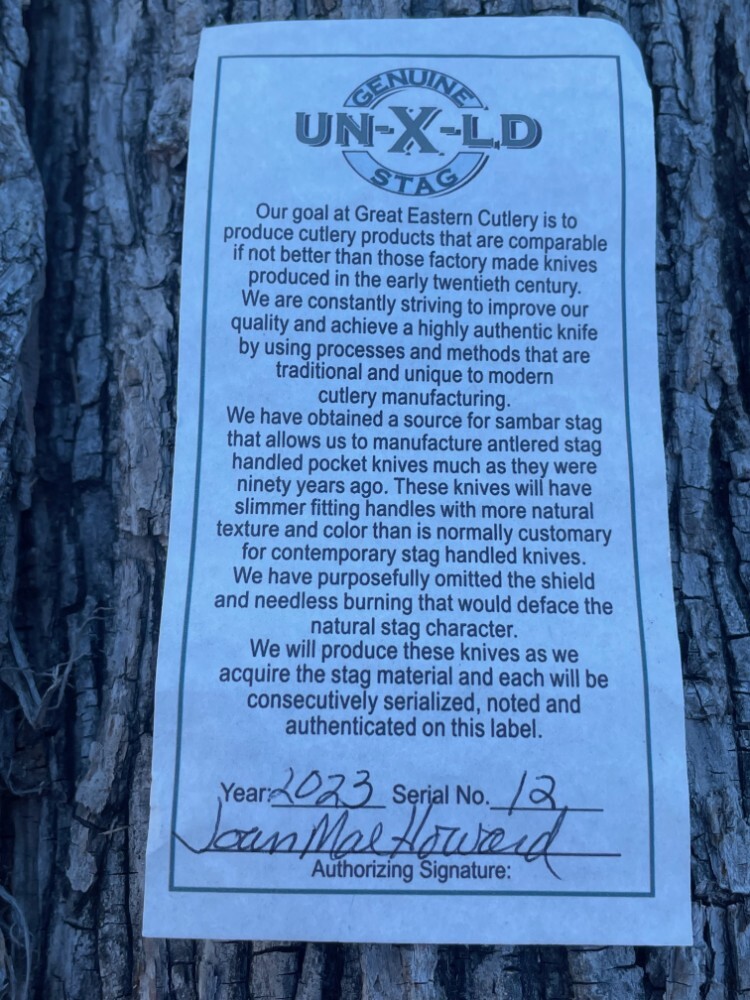 GENUINE
UN-X-LD
STAG
Our goal at Great Eastern Cutlery is to
produce cutlery products that are comparable
if not better than those factory made knives
produced in the early twentieth century.
We are constantly striving to improve our
quality and achieve a highly authentic knife
by using processes and methods that are
traditional and unique to modern
cutlery manufacturing.
We have obtained a source for sambar stag
that allows us to manufacture antlered stag
handled pocket knives much as they were
ninety years ago. These knives will have
slimmer fitting handles with more natural
texture and color than is normally customary
for contemporary stag handled knives.
We have purposefully omitted the shield
and needless burning that would deface the
natural stag character.
We will produce these knives as we
acquire the stag material and each will be
consecutively serialized, noted and
authenticated on this label.
Year: 2023 Serial No. 12
Joan Mae Howard
Authorizing Signature: